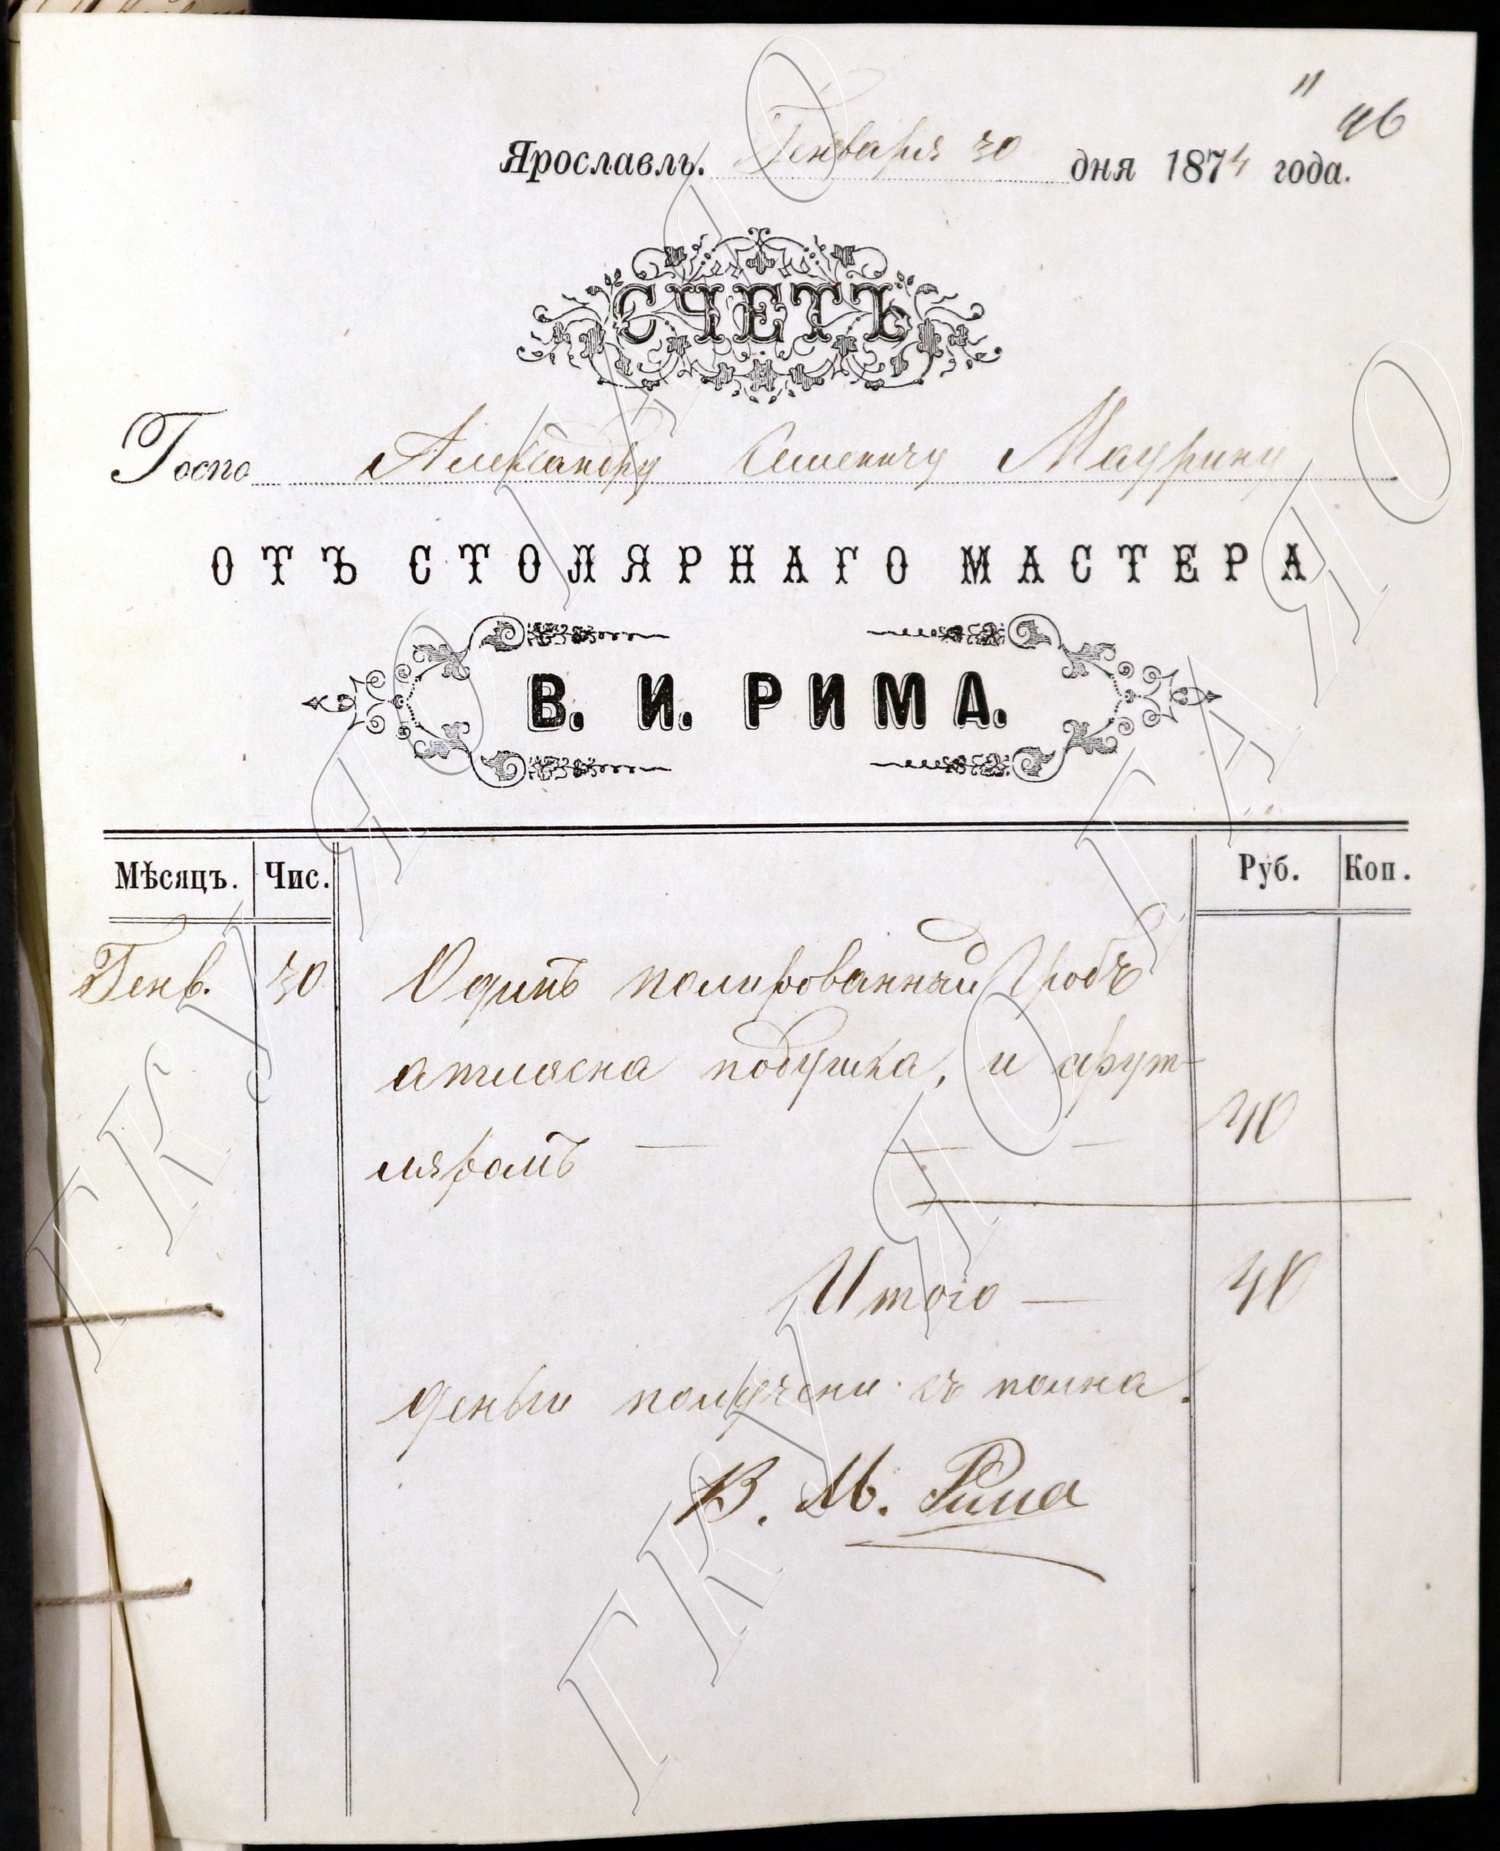 " 46
Ярославль. Генваря 30 дня 1874 года.
СЧЕТЪ
Госпо Александру Семеничу Маурину
ОТЪ СТОЛЯРНАГО МАСТЕРА
В. И. РИМА.
Мѣсяцъ. Чис. Руб. Коп.
Генв. 30 Одинъ полированный Гробъ
атласна подушка, и фут-
ляромъ — — — 40
Итого — 40
деньги получени съ полна.
В. И. Рима
ГКУ ЯО ГАЯО
ГКУ ЯО ГАЯО